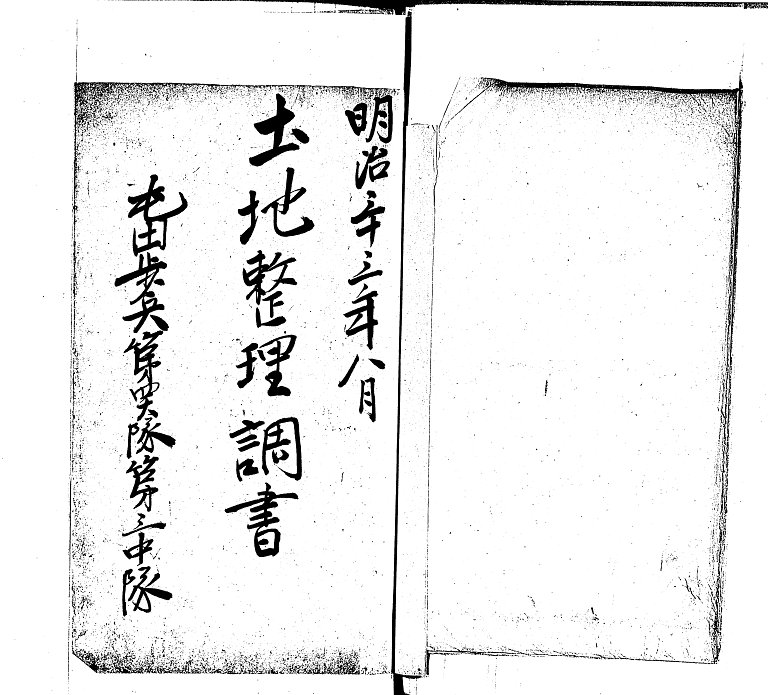 明治三十三年八月
土地整理調書
屯田歩兵第四大隊第三中隊